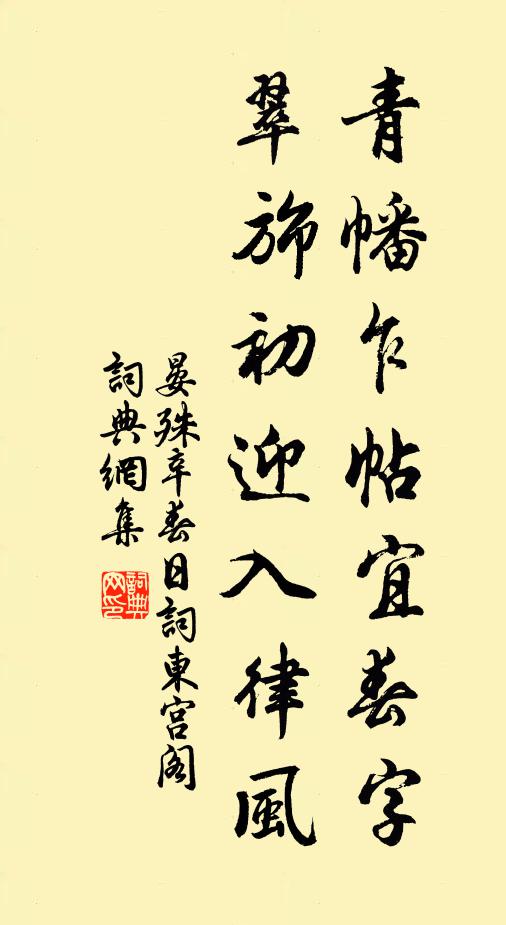 青幡乍帖宜春字
翠旆初迎入律風
晏殊辛春日詞東宮閣
詞典網集
詞典网印